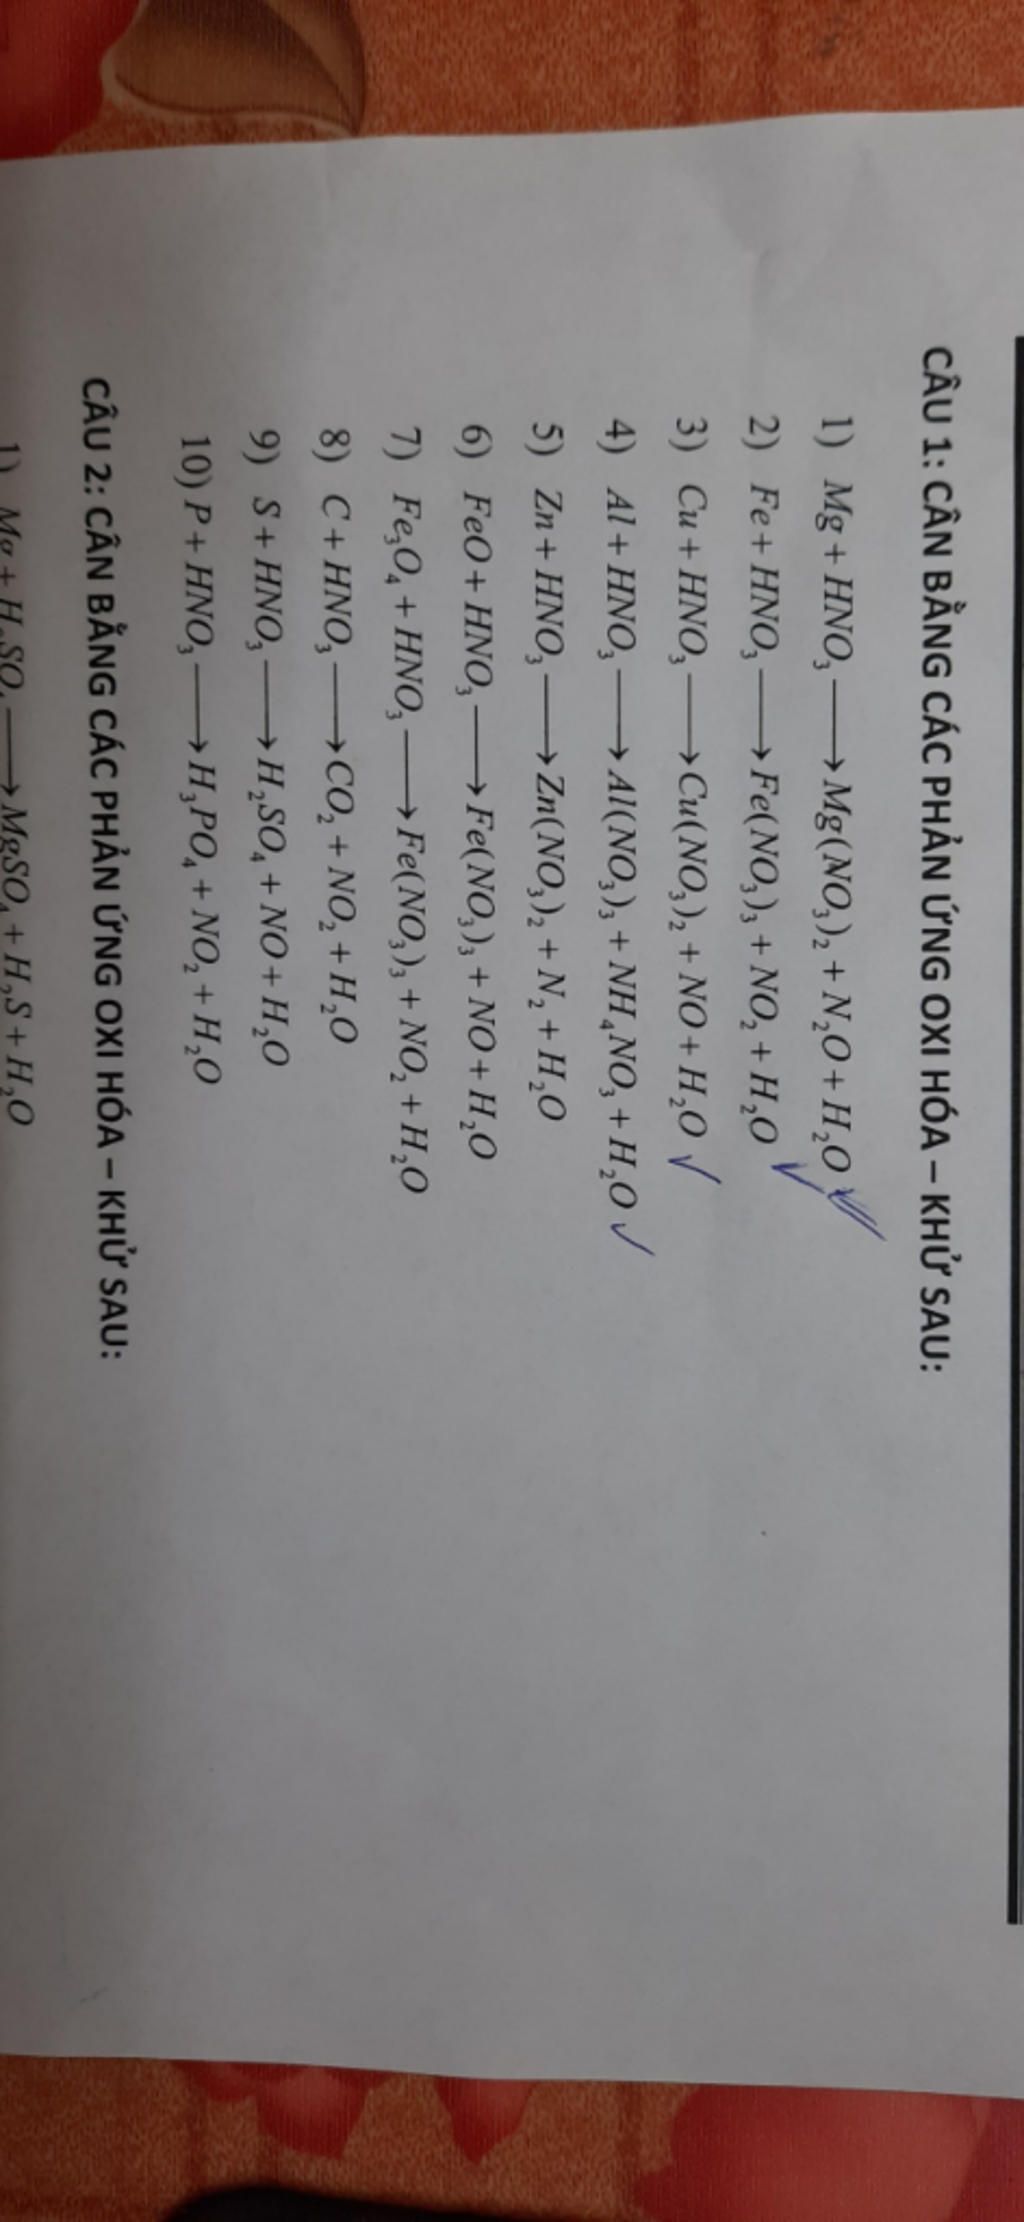 CÂU 1: CÂN BẰNG CÁC PHẢN ỨNG OXI HÓA – KHỬ SAU:
1) Mg + HNO₃ ⟶ Mg(NO₃)₂ + N₂O + H₂O
2) Fe + HNO₃ ⟶ Fe(NO₃)₃ + NO₂ + H₂O
3) Cu + HNO₃ ⟶ Cu(NO₃)₂ + NO + H₂O
4) Al + HNO₃ ⟶ Al(NO₃)₃ + NH₄NO₃ + H₂O
5) Zn + HNO₃ ⟶ Zn(NO₃)₂ + N₂ + H₂O
6) FeO + HNO₃ ⟶ Fe(NO₃)₃ + NO + H₂O
7) Fe₃O₄ + HNO₃ ⟶ Fe(NO₃)₃ + NO₂ + H₂O
8) C + HNO₃ ⟶ CO₂ + NO₂ + H₂O
9) S + HNO₃ ⟶ H₂SO₄ + NO + H₂O
10) P + HNO₃ ⟶ H₃PO₄ + NO₂ + H₂O
CÂU 2: CÂN BẰNG CÁC PHẢN ỨNG OXI HÓA – KHỬ SAU:
1) Mg + H₂SO₄ ⟶ MgSO₄ + H₂S + H₂O